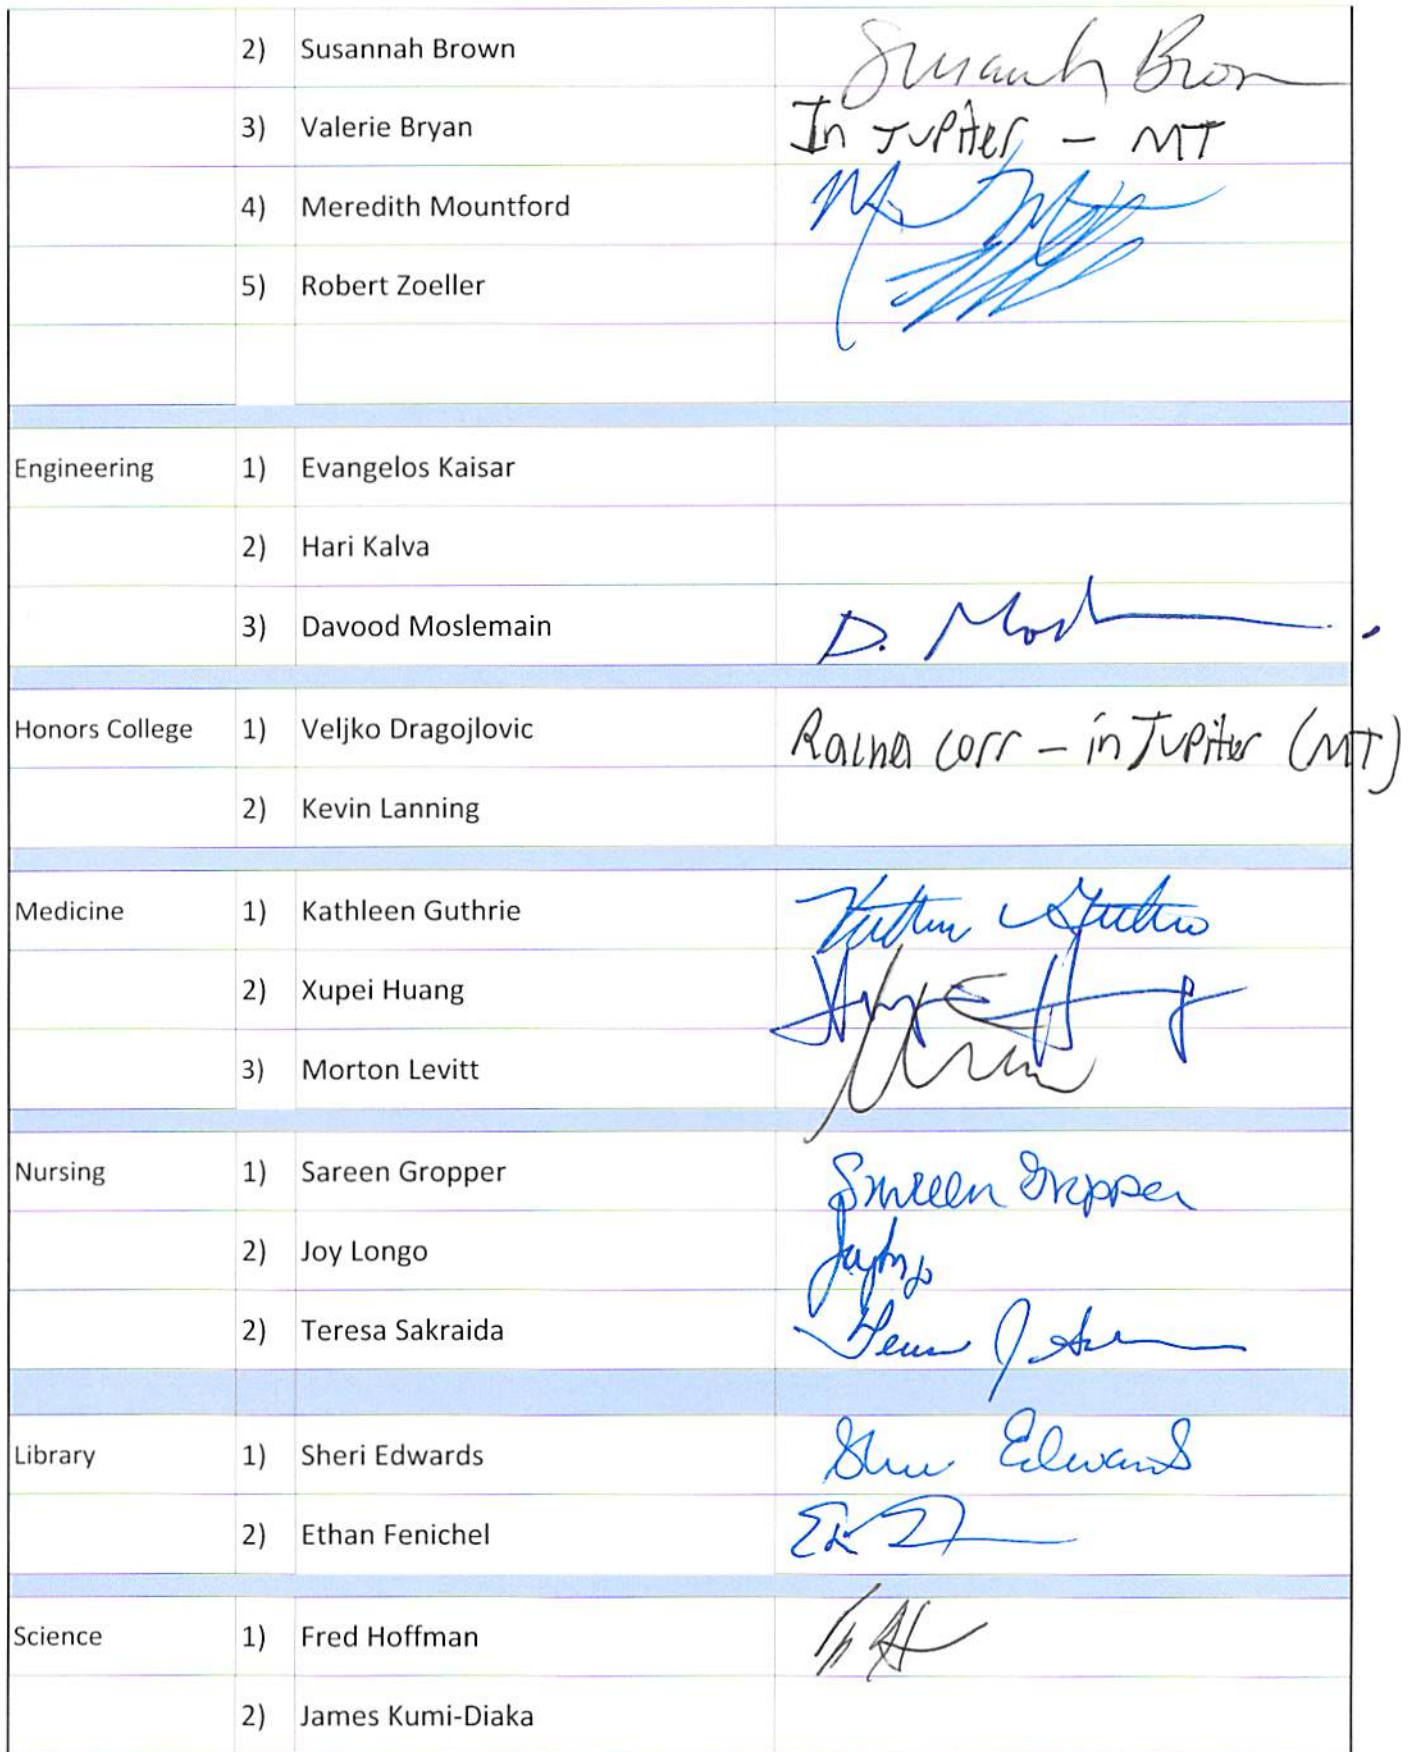 2) Susannah Brown Susannah Brown
3) Valerie Bryan In Jupiter - MT
4) Meredith Mountford
5) Robert Zoeller
Engineering 1) Evangelos Kaisar
2) Hari Kalva
3) Davood Moslemain D.
Honors College 1) Veljko Dragojlovic corr - in Jupiter (MT)
2) Kevin Lanning
Medicine 1) Kathleen Guthrie
2) Xupei Huang
3) Morton Levitt
Nursing 1) Sareen Gropper Sareen Gropper
2) Joy Longo
2) Teresa Sakraida
Library 1) Sheri Edwards Sheri Edwards
2) Ethan Fenichel
Science 1) Fred Hoffman
2) James Kumi-Diaka